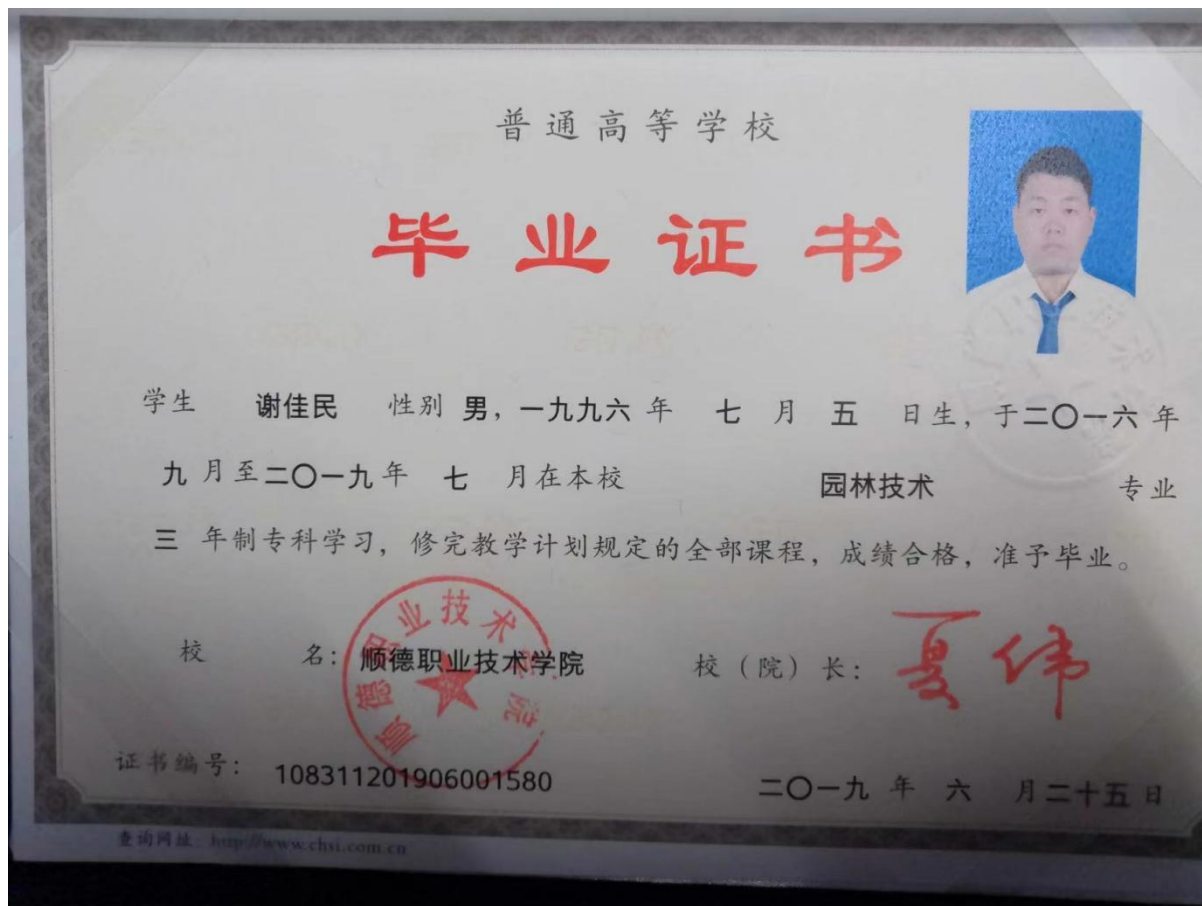 普通高等学校
毕业证书
学生 谢佳民 性别 男，一九九六 年 七 月 五 日生，于二〇一六 年
九 月至二〇一九年 七 月在本校 园林技术 专业
三 年制专科学习，修完教学计划规定的全部课程，成绩合格，准予毕业。
顺德职业技术学院
校 名：顺德职业技术学院 校（院）长：夏伟
证书编号：108311201906001580 二〇一九 年 六 月二十五日
查询网址：http://www.chsi.com.cn